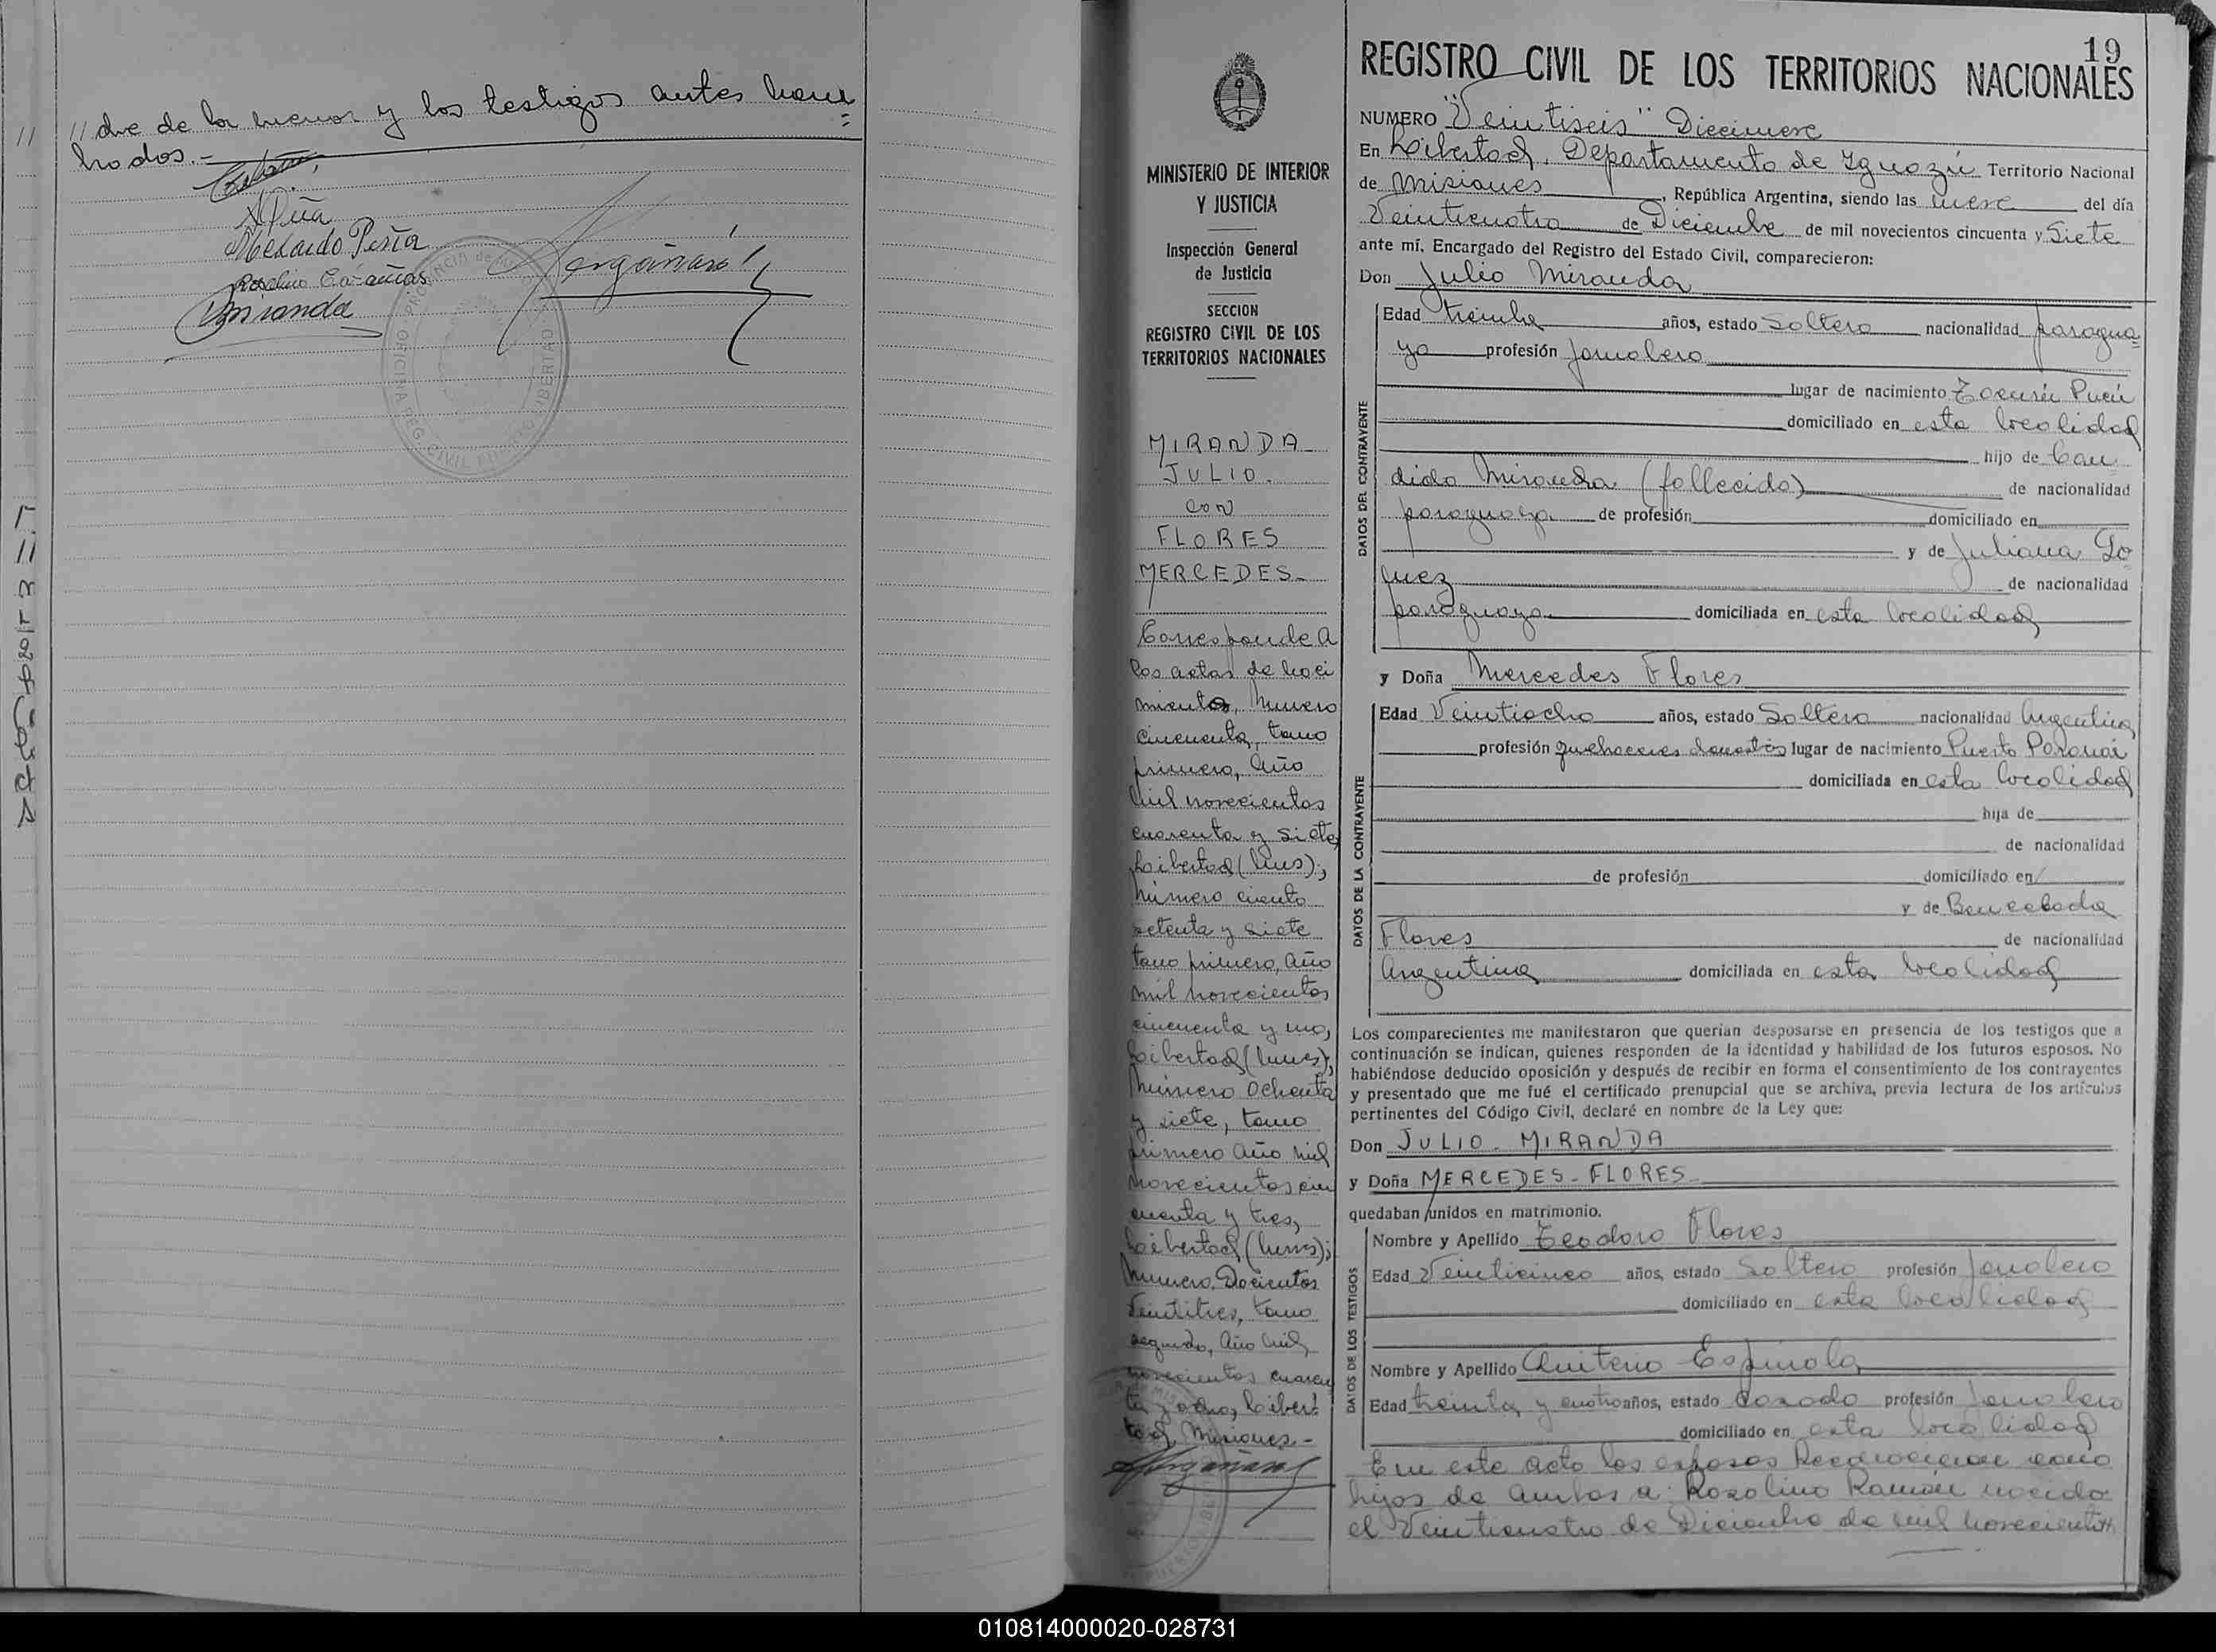 // dre de la menor y los testigos antes nom=
brados.-
Medardo Peria
Miranda
19
REGISTRO CIVIL DE LOS TERRITORIOS NACIONALES
MINISTERIO DE INTERIOR
Y JUSTICIA
Inspección General
de Justicia
SECCION
REGISTRO CIVIL DE LOS
TERRITORIOS NACIONALES
MIRANDA
JULIO.
CON
FLORES
MERCEDES-
Corresponde a
los actas de naci
mientos, Numero
cincuenta, tomo
primero, año
mil novecientos
cuarenta y siete,
Libertad (Mnes);
Número ciento
setenta y siete
tomo primero, año
mil novecientos
cincuenta y uno,
Libertad (Mnes);
Número ochenta
y siete, tomo
primero año mil
novecientos cin
cuenta y tres,
Libertad (Mnes);
Numero Docientos
Veintitres, tomo
segundo, año mil
novecientos cuaren
ta y ocho, Liber=
tad, Misiones.-
NUMERO "Veintiseis" Diecinueve
En Libertad, Departamento de Iguazú Territorio Nacional
de Misiones, República Argentina, siendo las nueve del día
Veinticuatro de Diciembre de mil novecientos cincuenta y Siete
ante mí, Encargado del Registro del Estado Civil, comparecieron:
Don Julio Miranda
DATOS DEL CONTRAYENTE
Edad treinta años, estado Soltero nacionalidad paragua=
ya profesión Jornalero
lugar de nacimiento Tacurú Pucú
domiciliado en esta localidad
hijo de Can
dido Miranda (fallecido) de nacionalidad
paraguaya de profesión domiciliado en
y de Juliana
de nacionalidad
paraguaya domiciliada en esta localidad
y Doña Mercedes Flores
DATOS DE LA CONTRAYENTE
Edad Veintiocho años, estado Soltera nacionalidad Argentina
profesión quehaceres domestics lugar de nacimiento Puerto Paranai
domiciliada en esta localidad
hija de
de nacionalidad
de profesión domiciliado en
y de
Flores de nacionalidad
Argentina domiciliada en esta localidad
Los comparecientes me manifestaron que querían desposarse en presencia de los testigos que a
continuación se indican, quienes responden de la identidad y habilidad de los futuros esposos. No
habiéndose deducido oposición y después de recibir en forma el consentimiento de los contrayentes
y presentado que me fué el certificado prenupcial que se archiva, previa lectura de los artículos
pertinentes del Código Civil, declaré en nombre de la Ley que:
Don JULIO - MIRANDA
y Doña MERCEDES - FLORES
quedaban unidos en matrimonio.
DATOS DE LOS TESTIGOS
Nombre y Apellido Teodoro Flores
Edad Veinticinco años, estado Soltero profesión Jornalero
domiciliado en esta localidad
Nombre y Apellido Quiterio Espinola
Edad treinta y cuatro años, estado Casado profesión Jornalero
domiciliado en esta localidad
En este acto los esposos Reconocieron como
hijos de ambos a: Rosalino Ramón nacido
el Veinticuatro de Diciembre de mil novecientos//
010814000020-028731